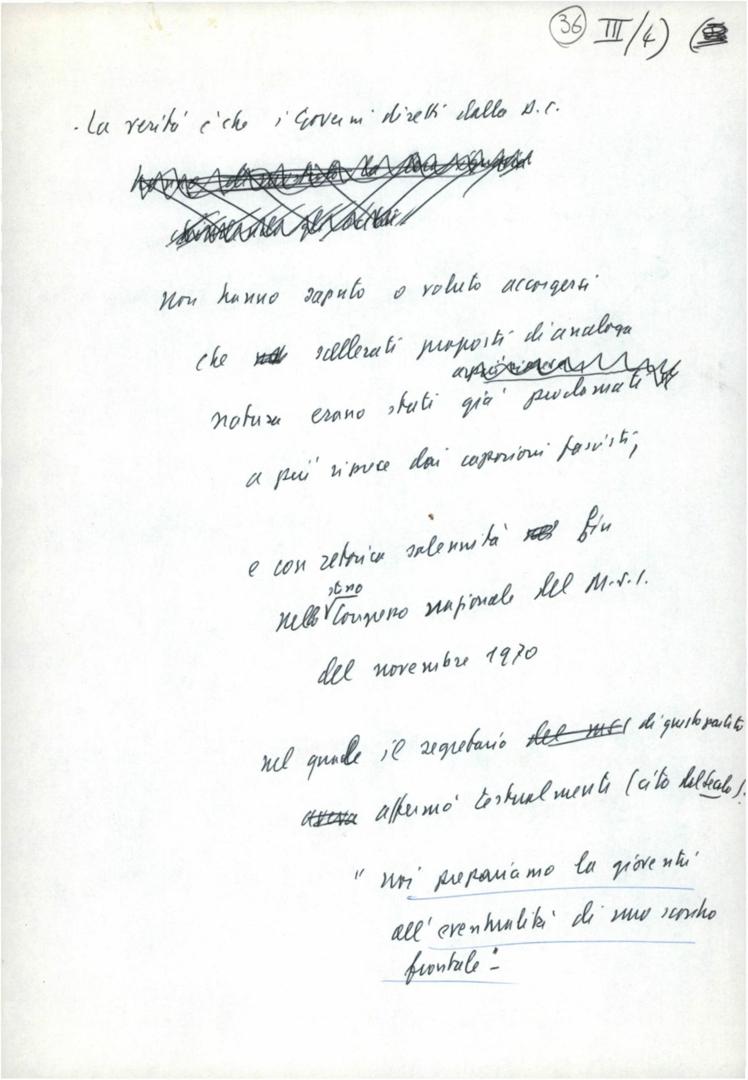 36 III/4)
- La verità è che i Governi diretti dalla D.C.
non hanno saputo o voluto accorgersi
che scellerati propositi di analoga
natura erano stati già proclamati
a più riprese dai caporioni fascisti,
e con retorica solennità fin
nello stesso Congresso nazionale del M.S.I.
del novembre 1970
nel quale il segretario del MSI di questo partito
aveva affermò testualmente (cito dal Secolo).
" noi prepariamo la gioventù
all'eventualità di uno scontro
frontale" -